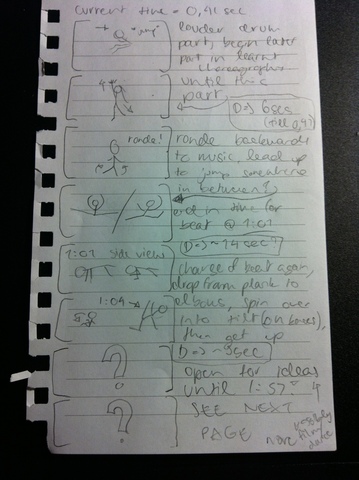 Current time = 0,41sec
"jump"
louder drum
part, begin later
part in learnt
choreography
until this
part,
D => 6secs
(till 0,47)
ronde!
ronde backwards
to music, lead up
to jump somewhere
in between?
end in time for
beat @ 1:01
D => ~14sec?
1:01 side views
Change of beat again,
drop from plank to
1:04
elbows, spin over
into tilt (on bones),
then get up
D => ~9sec
?
open for ideas
until 1:57?
?
SEE NEXT
PAGE
more
possibly
film